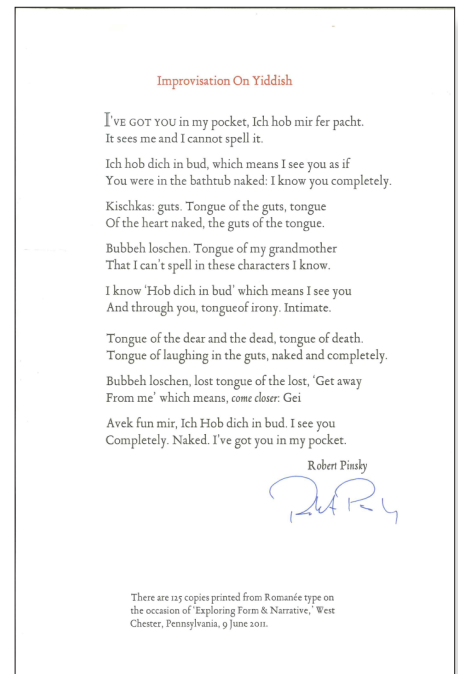 Improvisation On Yiddish
I'VE GOT YOU in my pocket, Ich hob mir fer pacht.
It sees me and I cannot spell it.
Ich hob dich in bud, which means I see you as if
You were in the bathtub naked: I know you completely.
Kischkas: guts. Tongue of the guts, tongue
Of the heart naked, the guts of the tongue.
Bubbeh loschen. Tongue of my grandmother
That I can't spell in these characters I know.
I know 'Hob dich in bud' which means I see you
And through you, tongueof irony. Intimate.
Tongue of the dear and the dead, tongue of death.
Tongue of laughing in the guts, naked and completely.
Bubbeh loschen, lost tongue of the lost, 'Get away
From me' which means, come closer: Gei
Avek fun mir, Ich Hob dich in bud. I see you
Completely. Naked. I've got you in my pocket.
Robert Pinsky
There are 125 copies printed from Romanée type on
the occasion of 'Exploring Form & Narrative,' West
Chester, Pennsylvania, 9 June 2011.